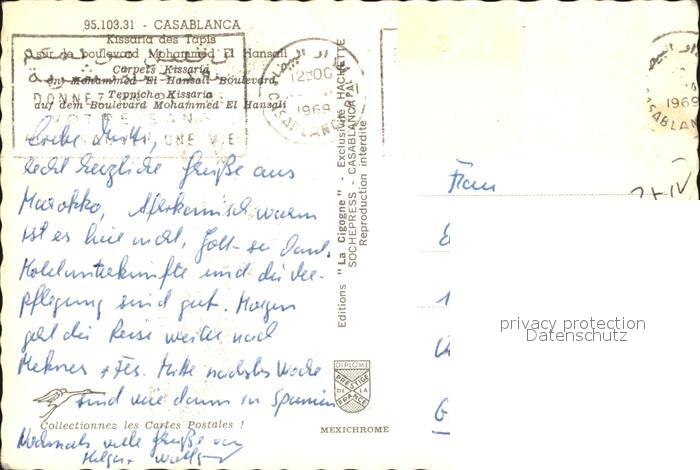 95.103.31 - CASABLANCA
Kissaria des Tapis
sur le boulevard Mohammed El Hansali
Carpets Kissaria
on Mohammed El Hansali Boulevard
Teppiche Kissaria
auf dem Boulevard Mohammed El Hansali
DONNEZ
SANG
UNE VIE
12H00
1969
CASABLANCA
1969
CASABLAN
Liebe Mutti,
recht herzliche Grüße aus
Marokko, Afrikanisch warm
ist es hier nicht, Gott sei Dank.
Hotelunterkünfte und die Ver-
pflegung sind gut. Morgen
geht die Reise weiter nach
Meknes + Fes. Mitte nächster Woche
sind wir dann in Spanien
Nochmals viele Grüße
Collectionnez les Cartes Postales !
Editions "La Cigogne" - Exclusivité HACHETTE
SOCHEPRESS - CASABLANCA
Reproduction interdite
DIPLOME
PRESTIGE
DE LA
FRANCE
MEXICHROME
Frau
privacy protection
Datenschutz